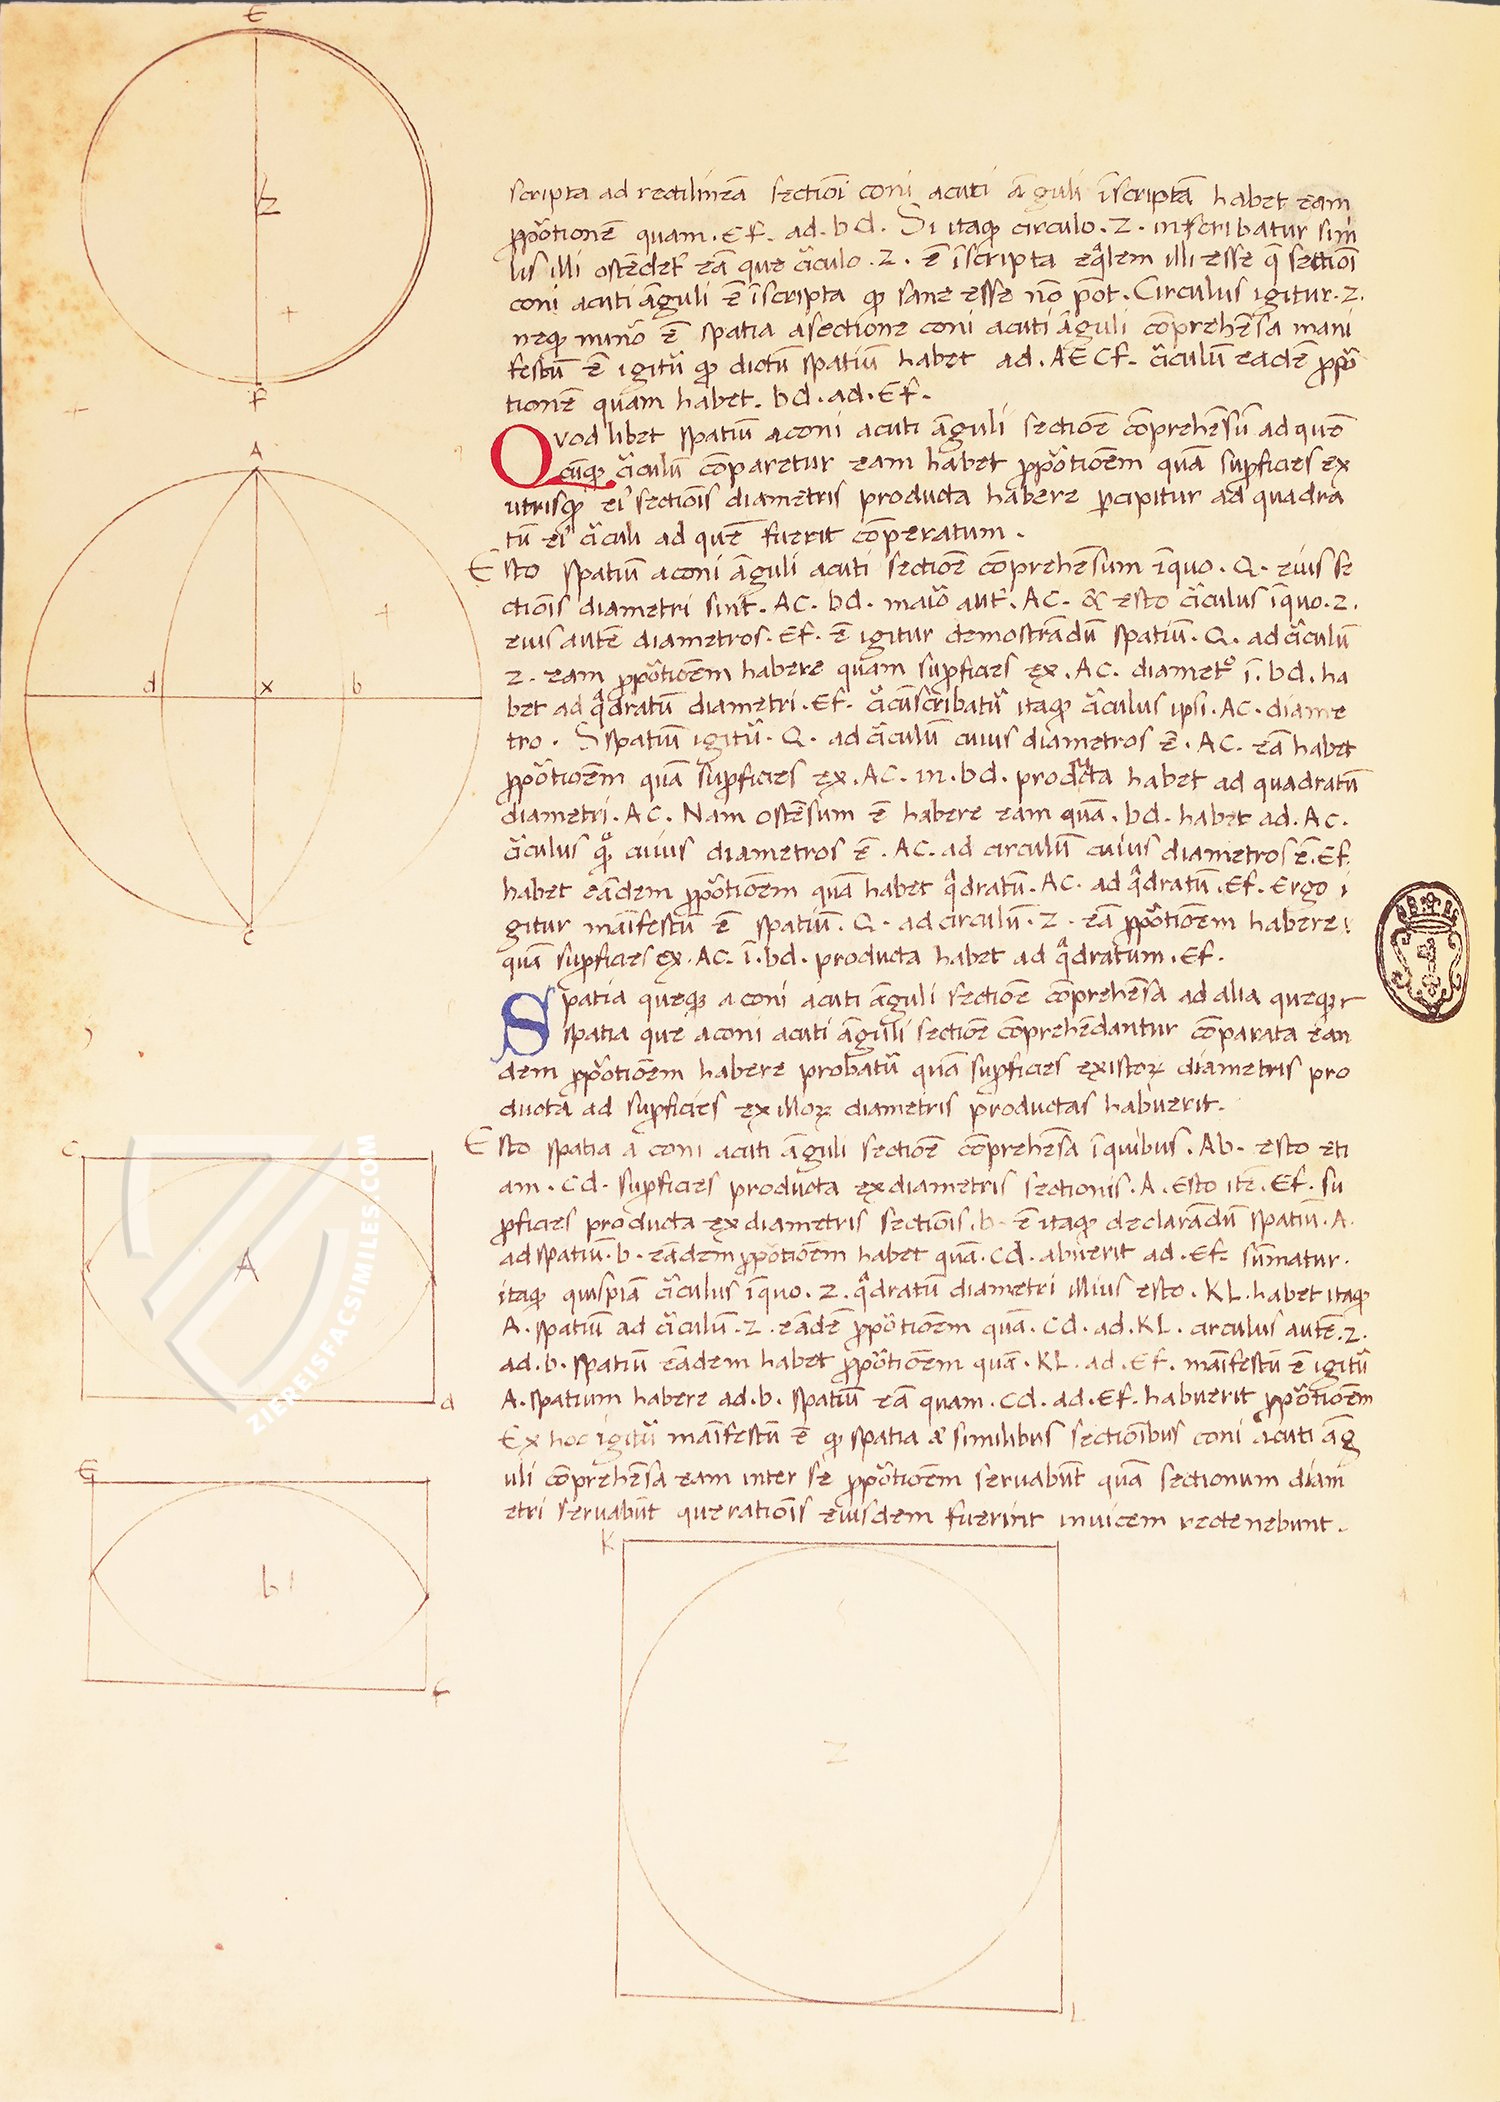 E
Z
F
A
d x b
C
scripta ad rectilineā sectiōi coni acuti āguli īscriptā habet eam
ꝓpōrtionē quam . Ef . ad . bd . Si itaqꝫ circulo . Z . inscribatur simi
lis illi ostēdet᷑ eā que cīculo . Z . ē īscripta eq̄lem illi esse q̄ sectiōi
coni acuti āguli ē īscripta qꝫ sane esse nō pōt . Circulus igitur . Z .
neqꝫ minōr ē spatia asectione coni acuti āguli cōprehēsa mani
festū ē igitūr qꝫ dictū spatiū habet ad . AECf . cīculū eadē ꝓpōr
tionē quam habet . bd . ad . Ef .
Qvod libet spatiū aconi acuti āguli sectiōe cōprehēsū ad quē
cūqꝫ cīculū cōparetur eam habet ꝓpōrtiōem quā suꝑficies ex
utrisqꝫ ei᷒ sectiōis diametris producta habere ꝑcipitur ad quadra
tū ei᷒ cīculi ad quē fuerit cōperatum .
Esto spatiū aconi āguli acuti sectiōe cōprehēsum īquo . Q . eius se
ctiōis diametri sint . AC . bd . maiōr aut᷑ . AC . & esto cīculus īquo . Z .
eius autē diametros . Ef . ē igitur demostrādū spatiū . Q . ad cīculū
Z . eam ꝓpōrtiōem habere quam suꝑficies ex . AC . diametᷣo ī . bd . ha
bet ad q̄dratū diametri . Ef . cīcūscribatūr itaqꝫ cīculus ipsi . AC . diame
tro . Sspatiū igitūr . Q . ad cīculū cuius diametros ē . AC . eā habet
ꝓpōrtiōem quā suꝑficies ex . AC . in . bd . producta habet ad quadratū
diametri . AC . Nam ostēsum ē habere eam quā . bd . habet ad . AC .
cīculus qꝫ cuius diametros ē . AC . ad circulū cuius diametros ē . Ef .
habet eādem ꝓpōrtiōem quā habet q̄dratū . AC . ad q̄dratū . Ef . Ergo i
gitur māifestū ē spatiū . Q . ad circulū . Z . eā ꝓpōrtiōem habere
quā suꝑficies ex . AC . ī . bd . producta habet ad q̄dratum . Ef .
Spatia queqꝫ aconi acuti āguli sectiōe cōprehēsa ad alia queqꝫ
spatia que aconi acuti āguli sectiōe cōprehēdantur cōparata ean
dem ꝓpōrtiōem habere probatūr quā suꝑficies existoꝝ diametris pro
ducta ad suꝑficies ex illoꝝ diametris productas habuerit .
Esto spatia a coni acuti āguli sectiōe cōprehēsa īquibus . Ab . esto eti
am . Cd . suꝑficies producta exdiametris sectionis . A . Esto itē . Ef . su
ꝑficies producta exdiametris sectiōis . b . ē itaqꝫ declarādū spatiū . A .
ad spatiū . b . eādem ꝓpōrtiōem habet quā . Cd . abuerit ad . Ef . sūmatur .
itaqꝫ quispiā cīculus īquo . Z . q̄dratū diametri illius esto . KL . habet itaqꝫ
A . spatiū ad cīculū . Z . eādē ꝓpōrtiōem quā . Cd . ad . KL . circulus autē . Z .
ad . b . spatiū eādem habet ꝓpōrtiōem quā . KL . ad . Ef . māifestū ē igitūr
A . spatium habere ad . b . spatiū eā quam . Cd . ad . Ef . habuerit ꝓpōrtiōem
Ex hoc igitūr māifestū ē qꝫ spatia a᷑ similibus sectiōibus coni acuti āg
uli cōprehēsa eam inter se ꝓpōrtiōem seruabūt quā sectionum diam
etri seruabūt que ratiōis eiusdem fuerint inuicem rectenebunt .
C
A
d
E
b
f
K
Z
L
ZIEREISFACSIMILES.COM